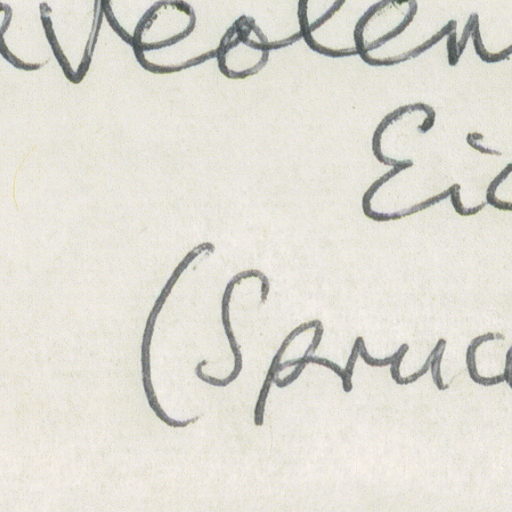 aveolen
Eic
(Spruce